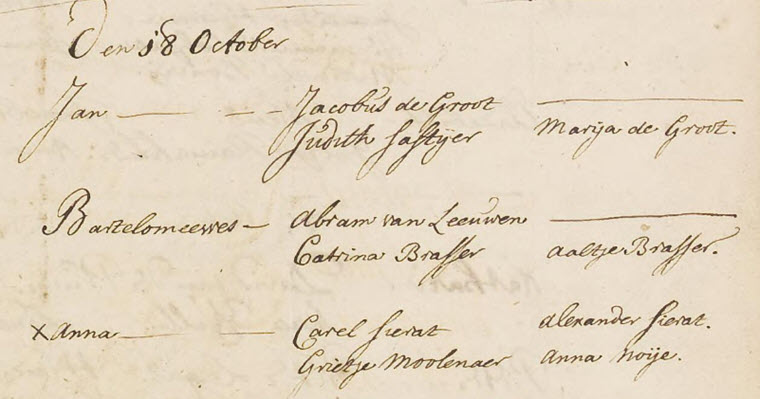 Den 18 October
Jan — — Jacobus de Groot —
Judith Sastijer Marija de Groot.
Bartelomeewes — Abram van Leeuwen —
Catrina Brasser Aaltje Brasser.
x Anna — — Carel Sierat Alexander Sierat.
Grietje Moolenaer Anna Noije.